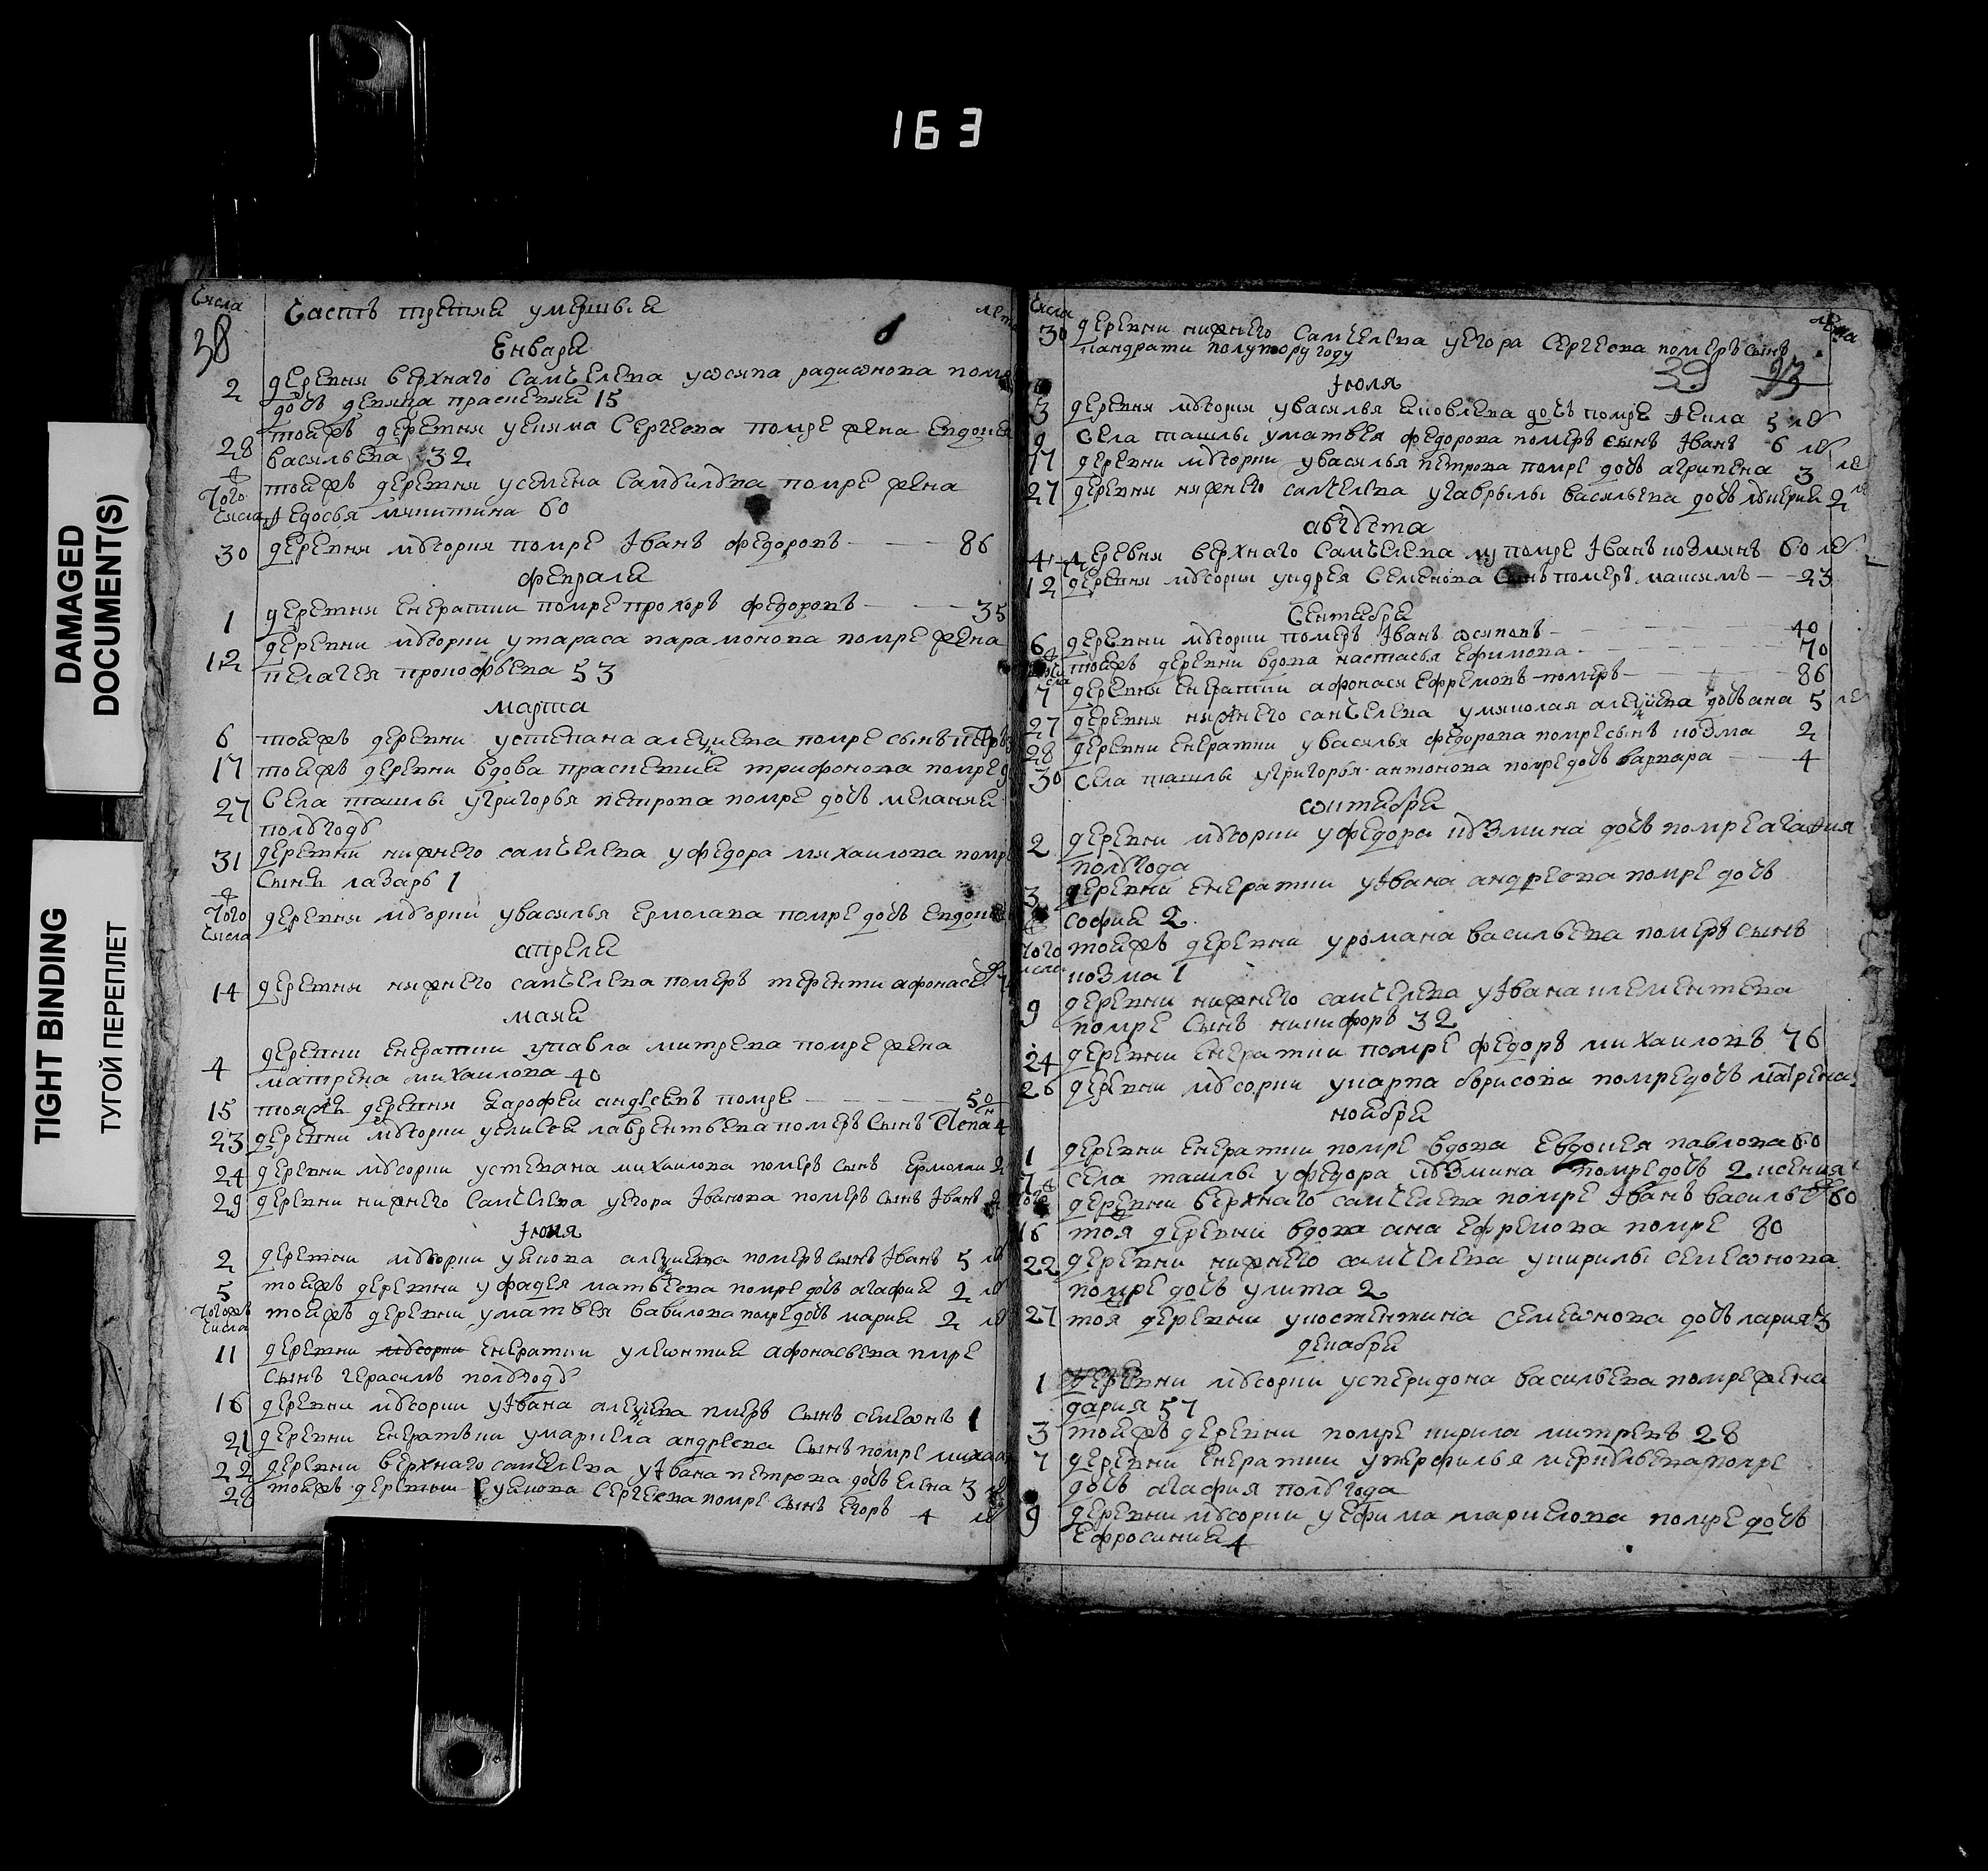 163
DAMAGED
DOCUMENT(S)
TIGHT BINDING
ТУГОЙ ПЕРЕПЛЕТ
числа
Часть третия умершыя
лета
38
Енваря
2 деревня верхнаго Самчелева у осипа радионова помре
дочь девица праскевия 15
28 тоежъ деревня у екима Сергеева помре жена Евдокия
васильева 32
того числа тоежъ деревня у семена Самойлова помре жена
Федосья микитина 60
30 деревня мѣсория помре Іванъ федоровъ 86
февраля
1 деревня Енератки помре прохоръ федоровъ 35
12 деревни мѣсории у тараса парамонова помре жена
пелагея прокофьева 53
марта
6 тоежъ деревни у степана алеѯиева помре сынъ петръ
17 тоежъ деревни вдова праскевия трифонова помре
27 Села ташлы у григорья петрова помре дочь меланья
полъгоду
31 деревни нижнего самчелева у федора михаилова помре
сынъ лазарь 1
того числа деревня мѣсории у василья ермолаева помре дочь Евдокия
апреля
14 деревня нижнего самчелева померъ терентий афонасев
мая
4 деревни Енератки у павла митрева помре жена
матрена михаилова 40
15 тояже деревня Ерофеи андреевъ помре 50
23 деревни мѣсории у елисея лаврентьева померъ сынъ степанъ
24 деревни мѣсории у степана михаилова померъ сынъ ермолаи 2
29 деревни нижнего Самчелева у егора Іванова померъ сынъ Іванъ 2
Іюня
2 деревни мѣсории у якова алеѯиева померъ сынъ Іванъ 5 ле
5 тоежъ деревни у фадея матвеева помре дочь агафия 2 ле
тогожъ числа тоежъ деревни у матвея вавилова помре дочь мария 2 ле
11 деревни Енератки у леонтия афонасьева пмре
сынъ герасимъ полъгоду
16 деревни мѣсории у Івана алеѯиева пмеръ сынъ семионъ 1
21 деревни Енератки у маркела андреева сынъ помре михаил
22 деревни верхнаго самчелева у Івана петрова дочь елена 3
28 тоежъ деревни у якова сергеева помре сынъ егоръ 4 ле
числа
лета
30 деревни нижнего Самчелева у егора сергеева померъ сынъ
пандрати полутору году
39 23
Іюля
3 деревня мѣсория у василья яковлева дочь помре 5 ле
9 села ташлы у матвея федорова померъ сынъ Іванъ 6 ле
17 деревни мѣсории у василья петрова помре дочь агрипена 3 ле
27 деревня нижнего самчелева у гаврылы васильева дочь 2 ле
августа
4 деревня верхнаго Самчелева помре Іванъ козминъ 60 ле
12 деревня мѣсория у андрея Семенова сынъ померъ максимъ 23
Сентября
6 деревни мѣсории померъ Іванъ осиповъ 40
тоежъ деревни вдова настасья Ефимова 70
7 деревня Енератки афонасеи ефремовъ померъ 86
27 деревня нижнего самчелева у миколая алеѯиева дочь ана 5 ле
28 деревни Енератки у василья федорова помре сынъ козма 2
30 села ташлы у григорья антонова помре дочь варвара 4
октября
2 деревни мѣсории у федора кѣзмина дочь помре агафия
полъгода
3 деревни Енератки у Івана андреева помре дочь
софия 2
того числа тоежъ деревни у романа васильева померъ сынъ
козма 1
9 деревни нижнего самчелева у Івана клементева
помре сынъ никифоръ 32
24 деревни Енератки помре федоръ михаиловъ 76
26 деревни мѣсории у карпа борисова помре дочь матрена
ноября
1 деревни Енератки помре вдова Евдокея павлова 60
7 села ташлы у федора кѣзмина помре дочь 2 ксения
деревни верхнаго самчелева помре Іванъ васильев 60
16 тоя деревни вдова ана ефремова помре 80
22 деревни нижнего самчелева у кирилы семеонова
помре дочь улита 2
27 тоя деревни у костентина семеонова дочь мария 3
декабря
1 деревни мѣсории у спиридона васильева помре жена
дария 57
3 тоежъ деревни помре кирила митревъ 28
7 деревни Енератки у перфилья меркульева помре
дочь агафия полъ года
9 деревни мѣсории у ефима маркелова помре дочь
Ефросиния 4